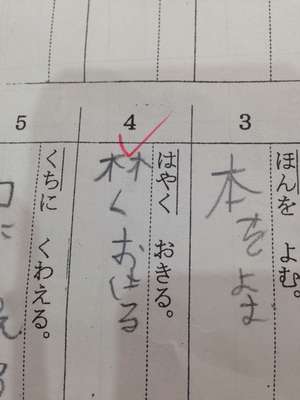 3
ほんを よむ。
本をよむ
4
はやく おきる。
林く おきる
5
くちに くわえる。